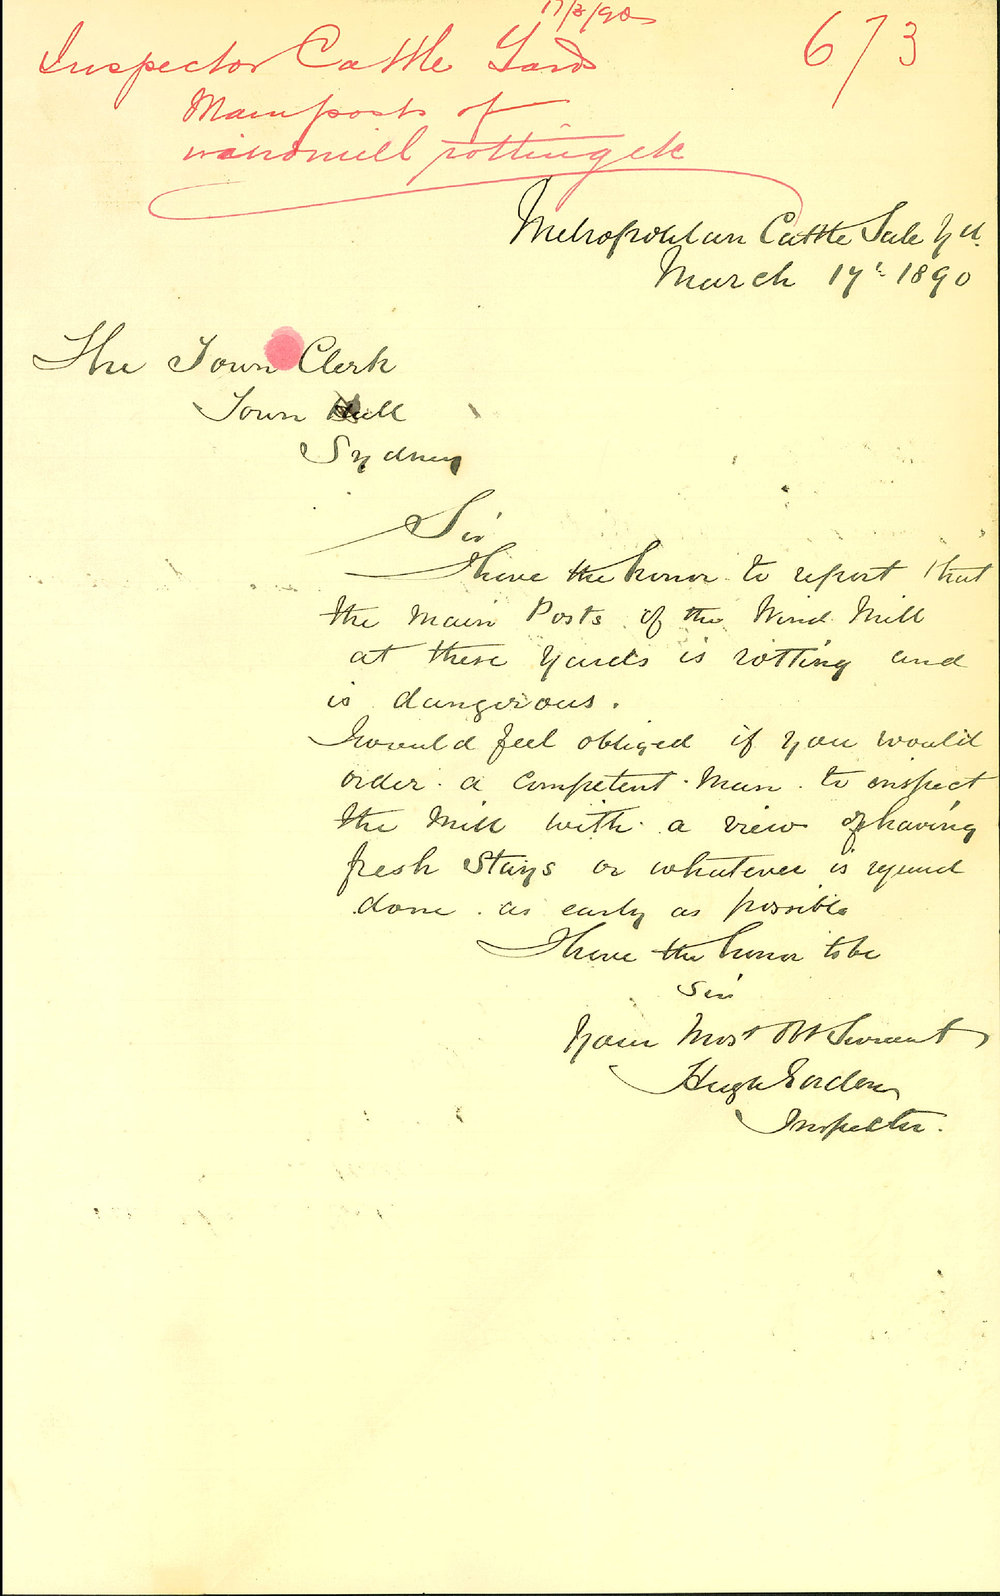 17/3/90
Inspector Cattle Yards
673
Main posts of
windmill rotting etc
Metropolitan Cattle Sale Yd.
March 17t 1890
The Town Clerk
Town Hall
Sydney
Sir
I have the honor to report that
the Main Posts of the Wind Mill
at these Yards is rotting and
is dangerous.
I would feel obliged if you would
order a competent Man to inspect
the Mill with a view of having
fresh Stays or whatever is requird
done as early as possible
I have the honor to be
Sir
Your Most Obt Servant
Hugh Gordon
Inspector.